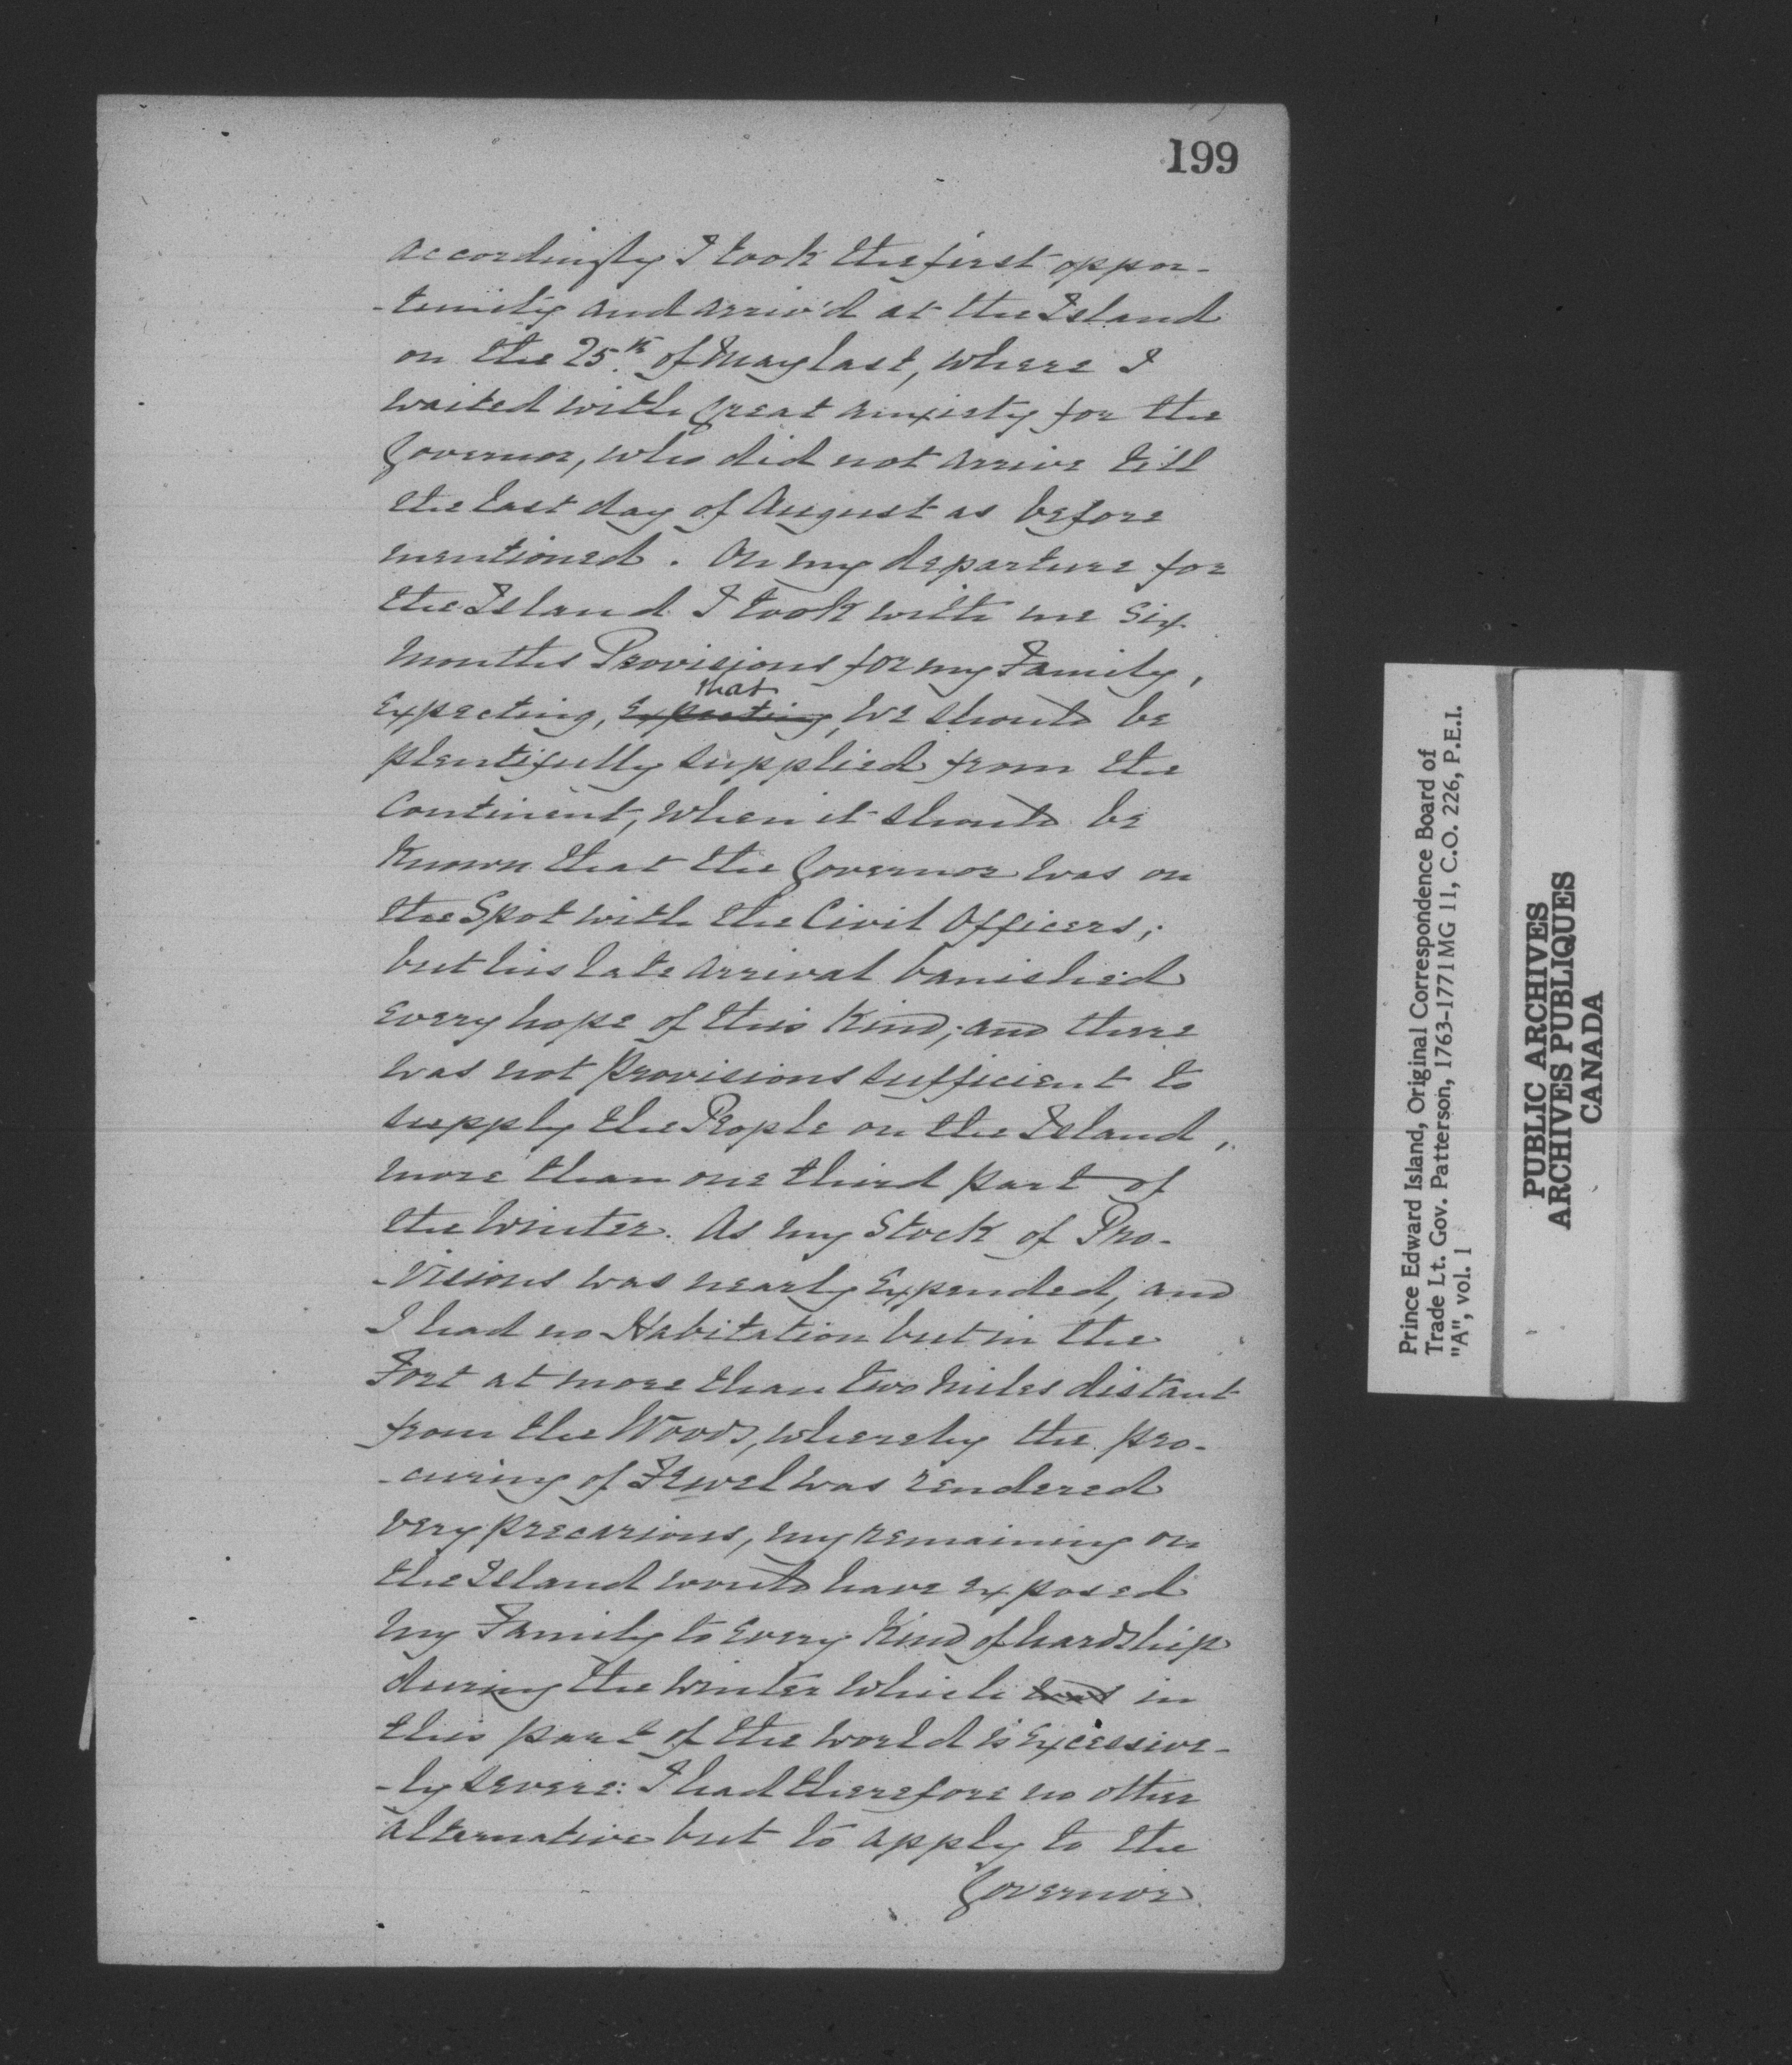 199
accordingly I took the first oppor-
-tunity and arriv'd at the Island
on the 25th. of May last, where I
waited with great anxiety for the
Governor, who did not arrive till
the last day of August as before
mentioned. On my departure for
the Island I took with me Six
Months Provisions for my Family,
that
Expecting, expecting, we should be
plentifully supplied from the
Continent, when it should be
Known that the Governor was on
the Spot with the Civil Officers;
but his late arrival banished
every hope of this Kind; and there
was not provisions sufficient to
supply the People on the Island,
more than one third part of
the Winter. As my Stock of Pro-
-visions was nearly Expended, and
I had no Habitation but in the
Fort at more than two Miles distant
from the Woods, whereby the pro-
-curing of Fewel was rendered
very precarious, my remaining on
the Island would have exposed
my Family to every Kind of hardship
during the Winter which was in
this part of the world is Excessive-
-ly severe: I had therefore no other
alternative but to apply to the
Governor
Prince Edward Island, Original Correspondence Board of
Trade Lt. Gov. Patterson, 1763-1771 MG 11, C.O. 226, P.E.I.
"A", vol. 1
PUBLIC ARCHIVES
ARCHIVES PUBLIQUES
CANADA